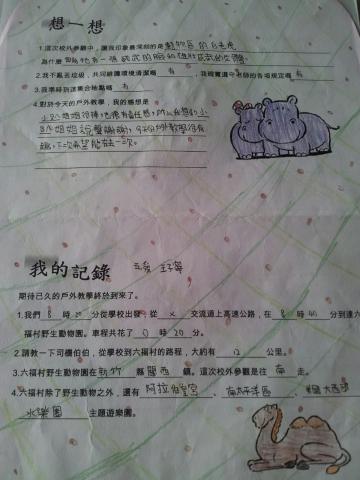 想一想
1.這次校外參觀中，讓我印象最深刻的是動物區的白老虎
為什麼 因為他有一張 的臉和雄壯威武的
2.我不亂丟垃圾，共同維護環境清潔嗎 有 ，我確實遵守老師的各項規定嗎 有
3.我準時到達集合地點嗎 有
4.對於今天的戶外教學，我的感想是
小 姐姐很棒，也很有責任感，所以我想和小
姐姐說聲謝謝，今天的戶外教學很有
趣，下次希望能在去一次。
我的記錄 王宇寧
期待已久的戶外教學終於到來了。
1.我們 8 時 20 分從學校出發，從 x 交流道上高速公路，在 8 時 40 分到達六
福村野生動物園。車程共花了 0 時 20 分。
2.請教一下司機伯伯，從學校到六福村的路程，大約有 12 公里。
3.六福村野生動物園在新竹 縣 關西 鎮。這次校外參觀是往 南 走。
4.六福村除了野生動物之外，還有 阿拉伯皇宮 、 南太平洋區 、 美國大西部
水樂園 主題遊樂園。